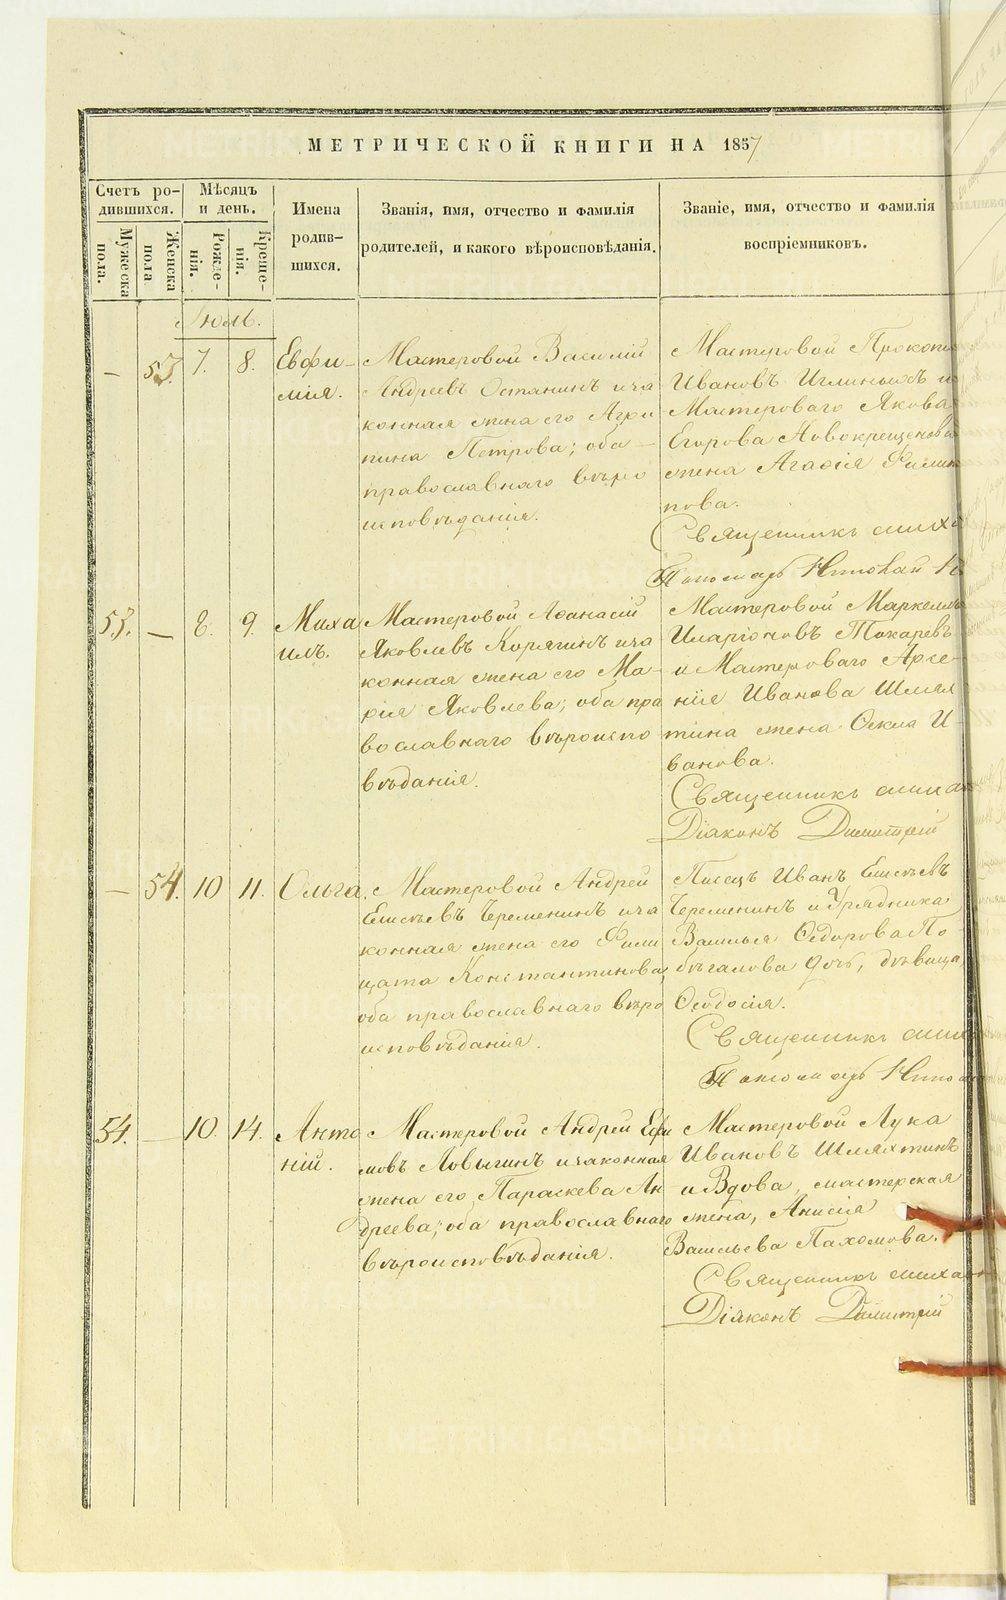 МЕТРИЧЕСКОЙ КНИГИ НА 1857
Счетъ ро-
дившихся.
Мужеска
пола.
Женска
пола
Мѣсяцъ
и день.
Рожде-
нія.
Креще-
нія.
Имена
родив-
шихся.
Званія, имя, отчество и фамилія
родителей, и какого вѣроисповѣданія.
Званіе, имя, отчество и фамилія
воспріемниковъ.
Іюль.
— 53. 7. 8.
Евфи-
мія.
Мастеровой Василій
Андреевъ Останинъ и за
конная жена его Агри
пина Петрова; оба —
православнаго вѣро
исповѣданія.
Мастеровой Прокопі
Ивановъ и
Мастероваго Якова
Егорова Новокрещенова
жена Агафія Филип
пова.
Священникъ Миха
Пономарь Николай
53. — 8. 9.
Миха
илъ.
Мастеровой Афанасій
Яковлевъ Корягинъ и за
конная жена его Ма-
рія Яковлева; оба пра
вославнаго вѣроиспо
вѣданія.
Мастеровой Маркелъ
Иларіоновъ Токаревъ
и Мастероваго Арсе-
нія Иванова Шлях
тина жена Фекла И-
ванова.
Священникъ Миха
Діаконъ Димитрій
— 54. 10 11.
Ольга.
Мастеровой Андрей
Елисѣевъ Черемѣнинъ и за
конная жена его Фили
цата Константинова,
оба православнаго вѣро
исповѣданія.
Писецъ Иванъ Елисѣевъ
Черемѣнинъ и Урядника
Василья Федорова По-
бѣгалова дочь, дѣвица,
Феодосія.
Священникъ Миха
Пономарь Нико
54. — 10. 14.
Анто
ній.
Мастеровой Андрей Ефи
мовъ Ловыгинъ и законная
жена его Параскева Ан-
дреева; оба православнаго
вѣроисповѣданія.
Мастеровой Лука
Ивановъ Шляхтинъ
и Вдова, мастерская
жена, Анисія
Васильева Пахомова.
Священникъ Миха
Діаконъ Димитрій
METRIKI.GASO-URAL.RU